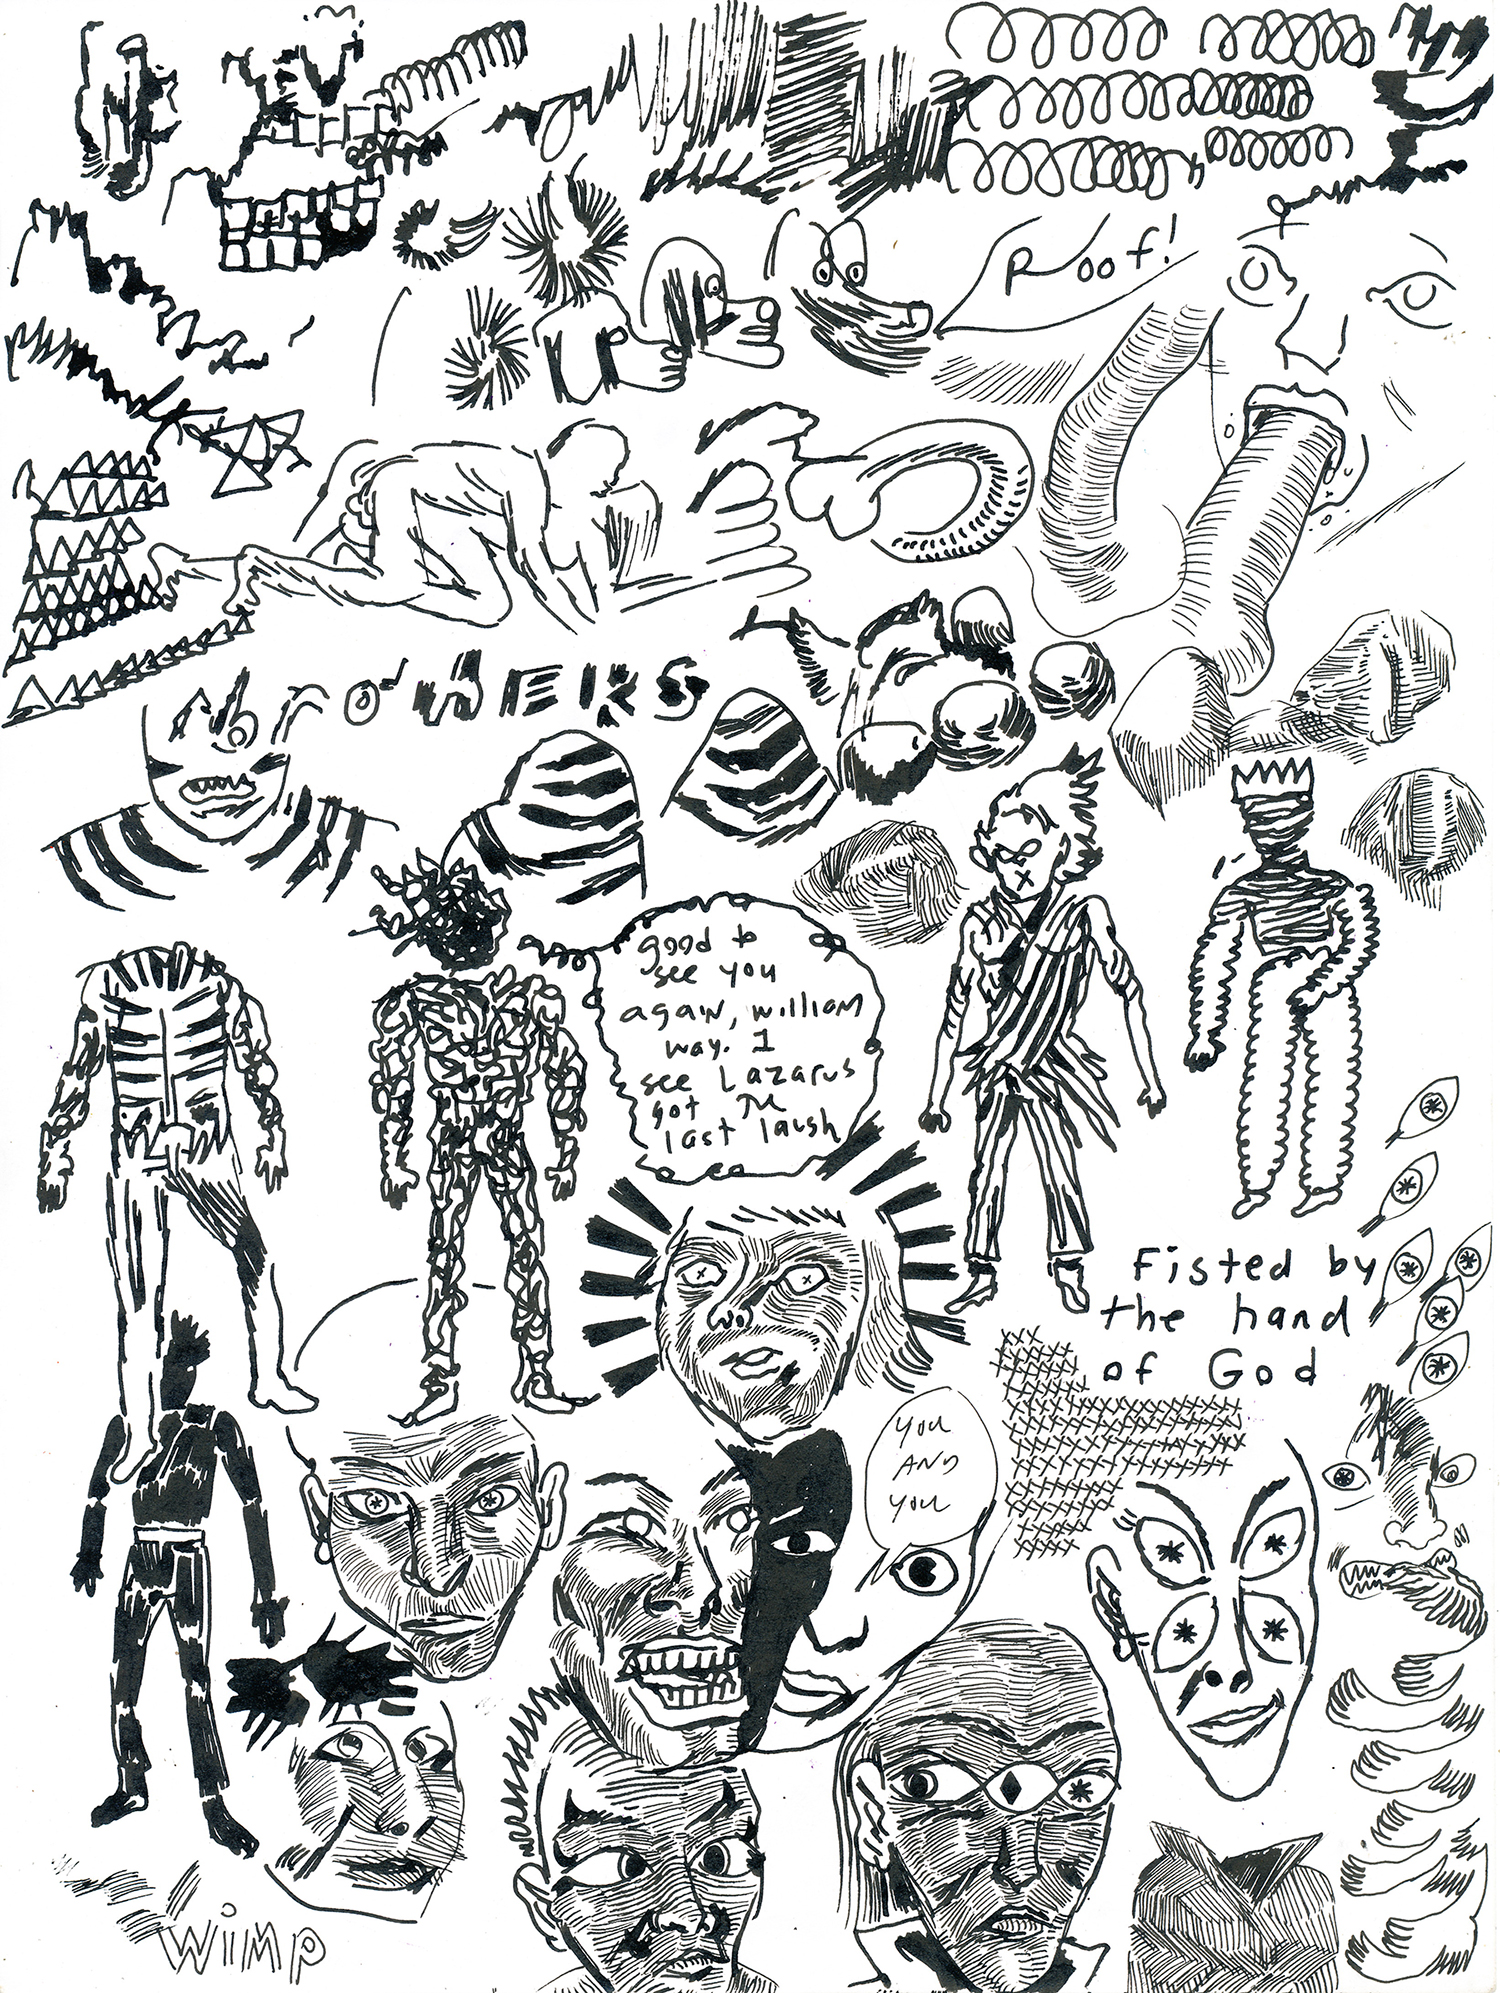 Roof!
good to
see you
again, william
way. I
see Lazarus
got the
last laugh
Fisted by
the hand
of God
you
AND
you
Wimp